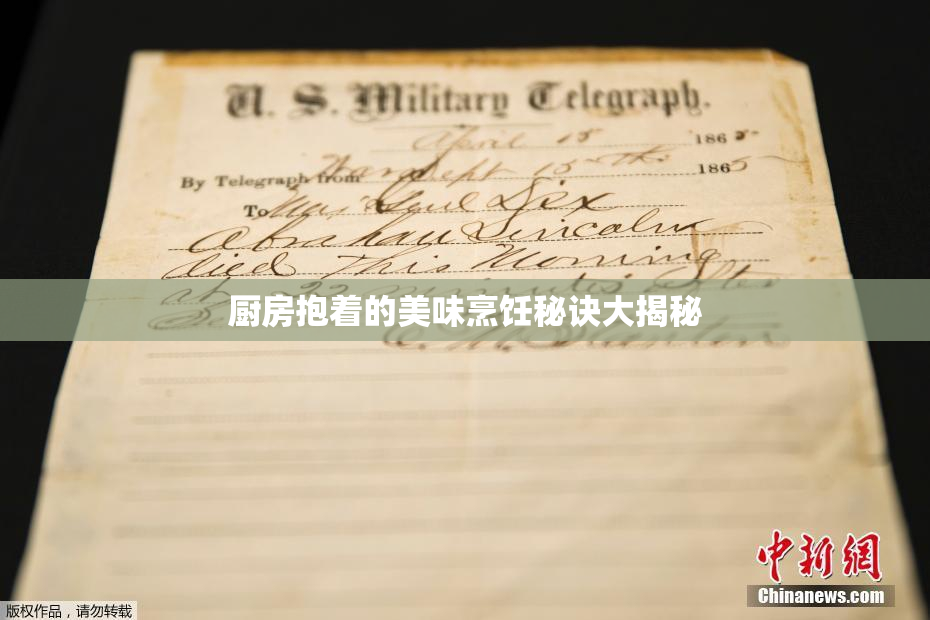 U. S. Military Telegraph.
April 15 1865
By Telegraph from War Dept 15th 1865
To Maj Genl Dix
Abraham Lincoln
died This Morning
at 22 minutes after
厨房抱着的美味烹饪秘诀大揭秘
E. M. Stanton
中新网
Chinanews.com
版权作品，请勿转载